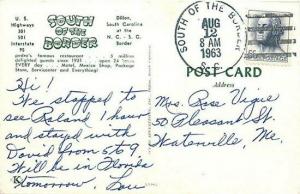 U. S.
Highways
301
501
Interstate
95
SOUTH
OF THE
BORDER
Dillon,
South Carolina
at the
N. C. - S. C.
Border
pedro's famous restaurant
delighted guests since 1951 24 hours
EVERY day Motel, Mexico Shop, Package
Store, Servicenter and Everything!
SOUTH OF THE BORDER
AUG
12
8 AM
1963
S.C.
POST CARD
Address
Hi!
We stopped to
see Roland 1 hour
and stayed with
David from 5 to 9.
Will be in Florida
tomorrow. Lou
K
Mrs. Rose Vigue
50 Pleasant St.
Waterville, Me.